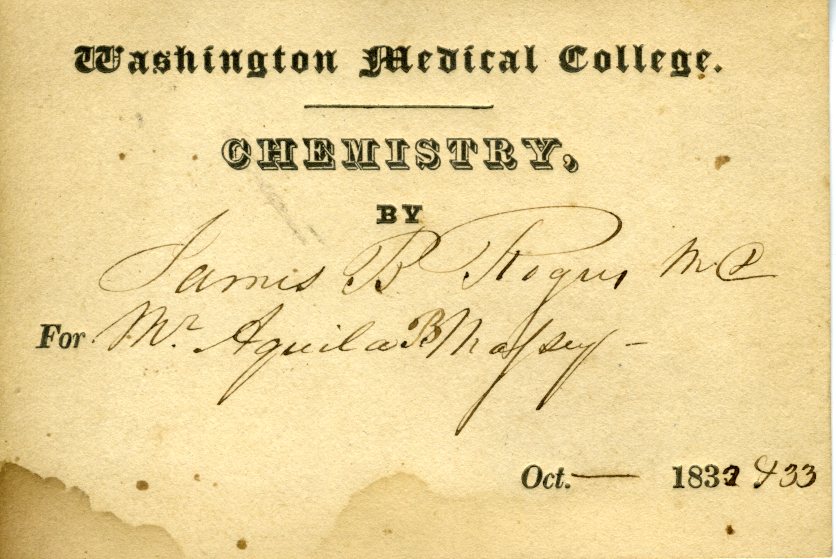 Washington Medical College.
CHEMISTRY,
BY
James B Rogers M D
For Mr. Aquila B Massey –
Oct. — 1832 & 33